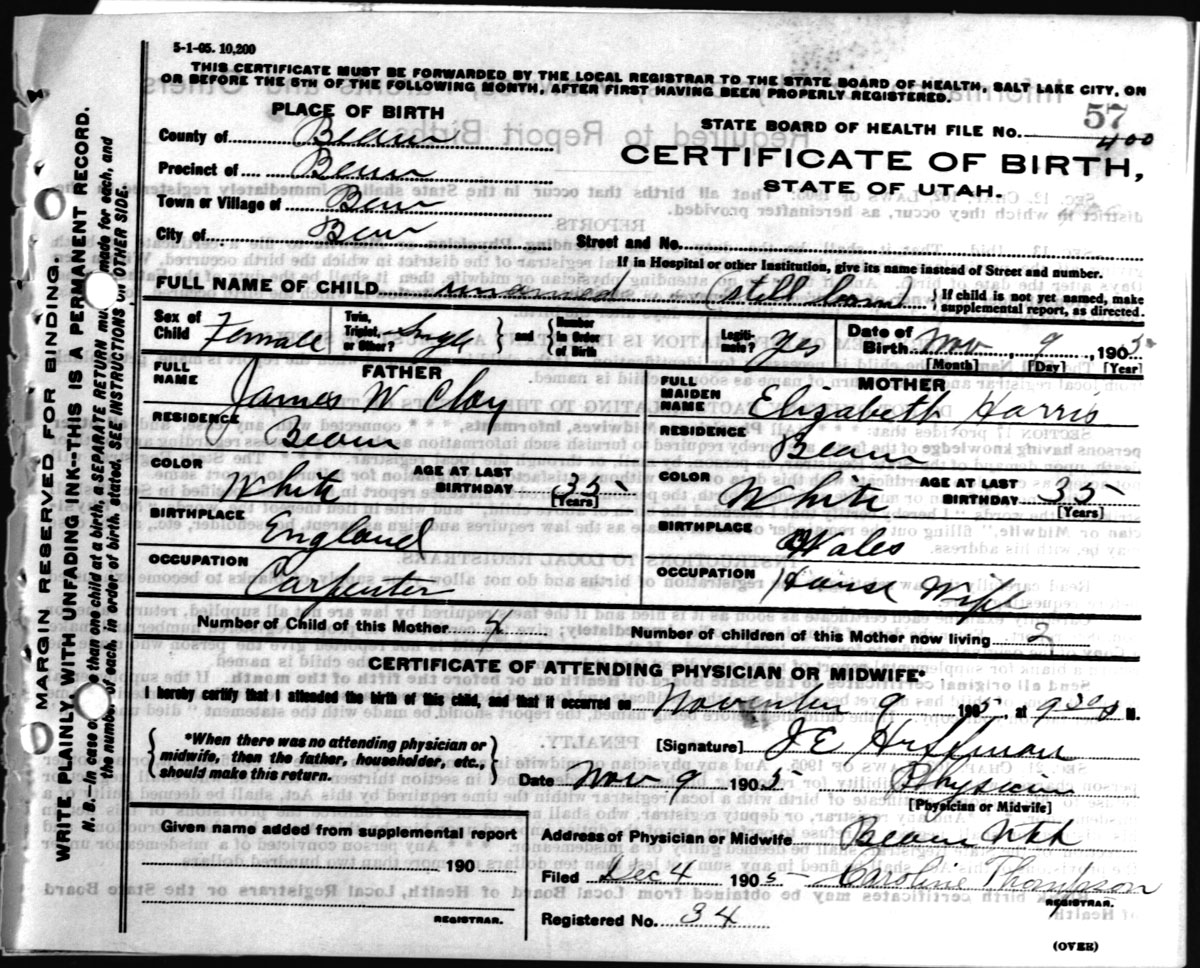 5-1-05. 10,200
THIS CERTIFICATE MUST BE FORWARDED BY THE LOCAL REGISTRAR TO THE STATE BOARD OF HEALTH, SALT LAKE CITY, ON
OR BEFORE THE 5TH OF THE FOLLOWING MONTH, AFTER FIRST HAVING BEEN PROPERLY REGISTERED.
PLACE OF BIRTH
County of Beaver
Precinct of Beaver
Town or Village of Beaver
City of Beaver
57
STATE BOARD OF HEALTH FILE No. 400
CERTIFICATE OF BIRTH,
STATE OF UTAH.
Street and No.
If in Hospital or other Institution, give its name instead of Street and number.
FULL NAME OF CHILD unnamed (Still born) } If child is not yet named, make supplemental report, as directed.
Sex of Child Female Twin, Triplet, or Other? Single } and { Number in Order of Birth Legiti-mate? Yes Date of Birth Nov 9, 1905
[Month] [Day] [Year]
FATHER
FULL NAME James W Clay
RESIDENCE Beaver
COLOR White AGE AT LAST BIRTHDAY 35 [Years]
BIRTHPLACE England
OCCUPATION Carpenter
MOTHER
FULL MAIDEN NAME Elizabeth Harris
RESIDENCE Beaver
COLOR White AGE AT LAST BIRTHDAY 35 [Years]
BIRTHPLACE Wales
OCCUPATION House Wife
Number of Child of this Mother 4 Number of children of this Mother now living 2
CERTIFICATE OF ATTENDING PHYSICIAN OR MIDWIFE*
I hereby certify that I attended the birth of this child, and that it occurred on November 9 1905, at 9 30 M.
{ *When there was no attending physician or midwife, then the father, householder, etc., should make this return. }
[Signature] J E
Date Nov 9 1905 Physician
[Physician or Midwife]
Given name added from supplemental report
190
REGISTRAR.
Address of Physician or Midwife Beaver Utah
Filed Dec 4 1905 Caroline Thompson
REGISTRAR.
Registered No. 34
(OVER)
MARGIN RESERVED FOR BINDING.
WRITE PLAINLY WITH UNFADING INK--THIS IS A PERMANENT RECORD.
N. B.--In case of than one child at a birth, a SEPARATE RETURN must made for each, and
the number of each, in order of birth, stated. SEE INSTRUCTIONS ON OTHER SIDE.